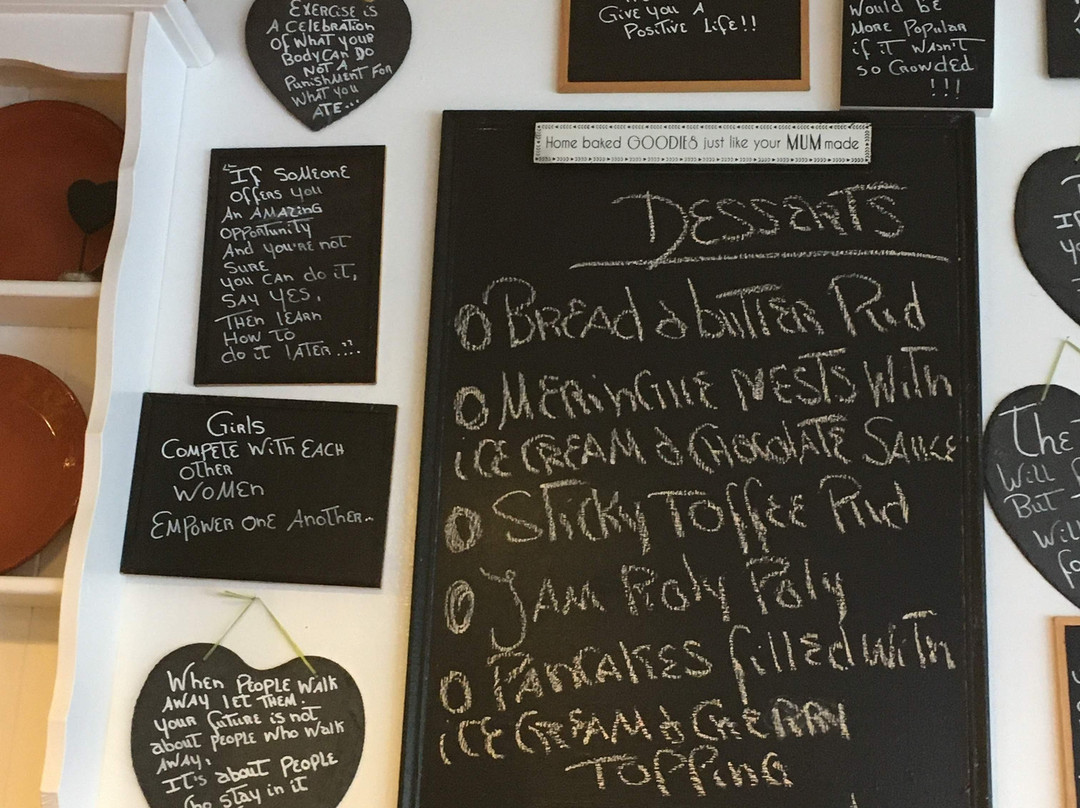 EXERCISE IS
A CELEBRATION
OF WHAT YOUR
BODY CAN DO
NOT A
PUNISHMENT FOR
WHAT YOU
ATE...
GIVE YOU A
POSITIVE LIFE!!
WOULD BE
MORE POPULAR
if it WASN'T
SO CROWDED
!!!
"IF SOMEONE
OFFERS YOU
AN AMAZING
OPPORTUNITY
AND YOU'RE NOT
SURE
YOU CAN do iT,
SAY YES,
THEN LEARN
HOW TO
do iT LATER...."
GIRLS
COMPETE WITH EACH
OTHER
WOMEN
EMPOWER ONE ANOTHER..
WHEN PEOPLE WALK
AWAY LET THEM.
YOUR FUTURE IS NOT
ABOUT PEOPLE WHO WALK
AWAY.
IT'S ABOUT PEOPLE
STAY IN IT
Home baked GOODIES just like your MUM made
DESSERTS
O BREAD & BUTTER PUD
O MERINGUE NESTS WITH
ICE CREAM & CHOCOLATE SAUCE
O STICKY TOFFEE PUD
O JAM ROLY POLY
O PANCAKES FILLED WITH
ICE CREAM & CHERRY
TOPPING
THE
WILL
BUT
WILL